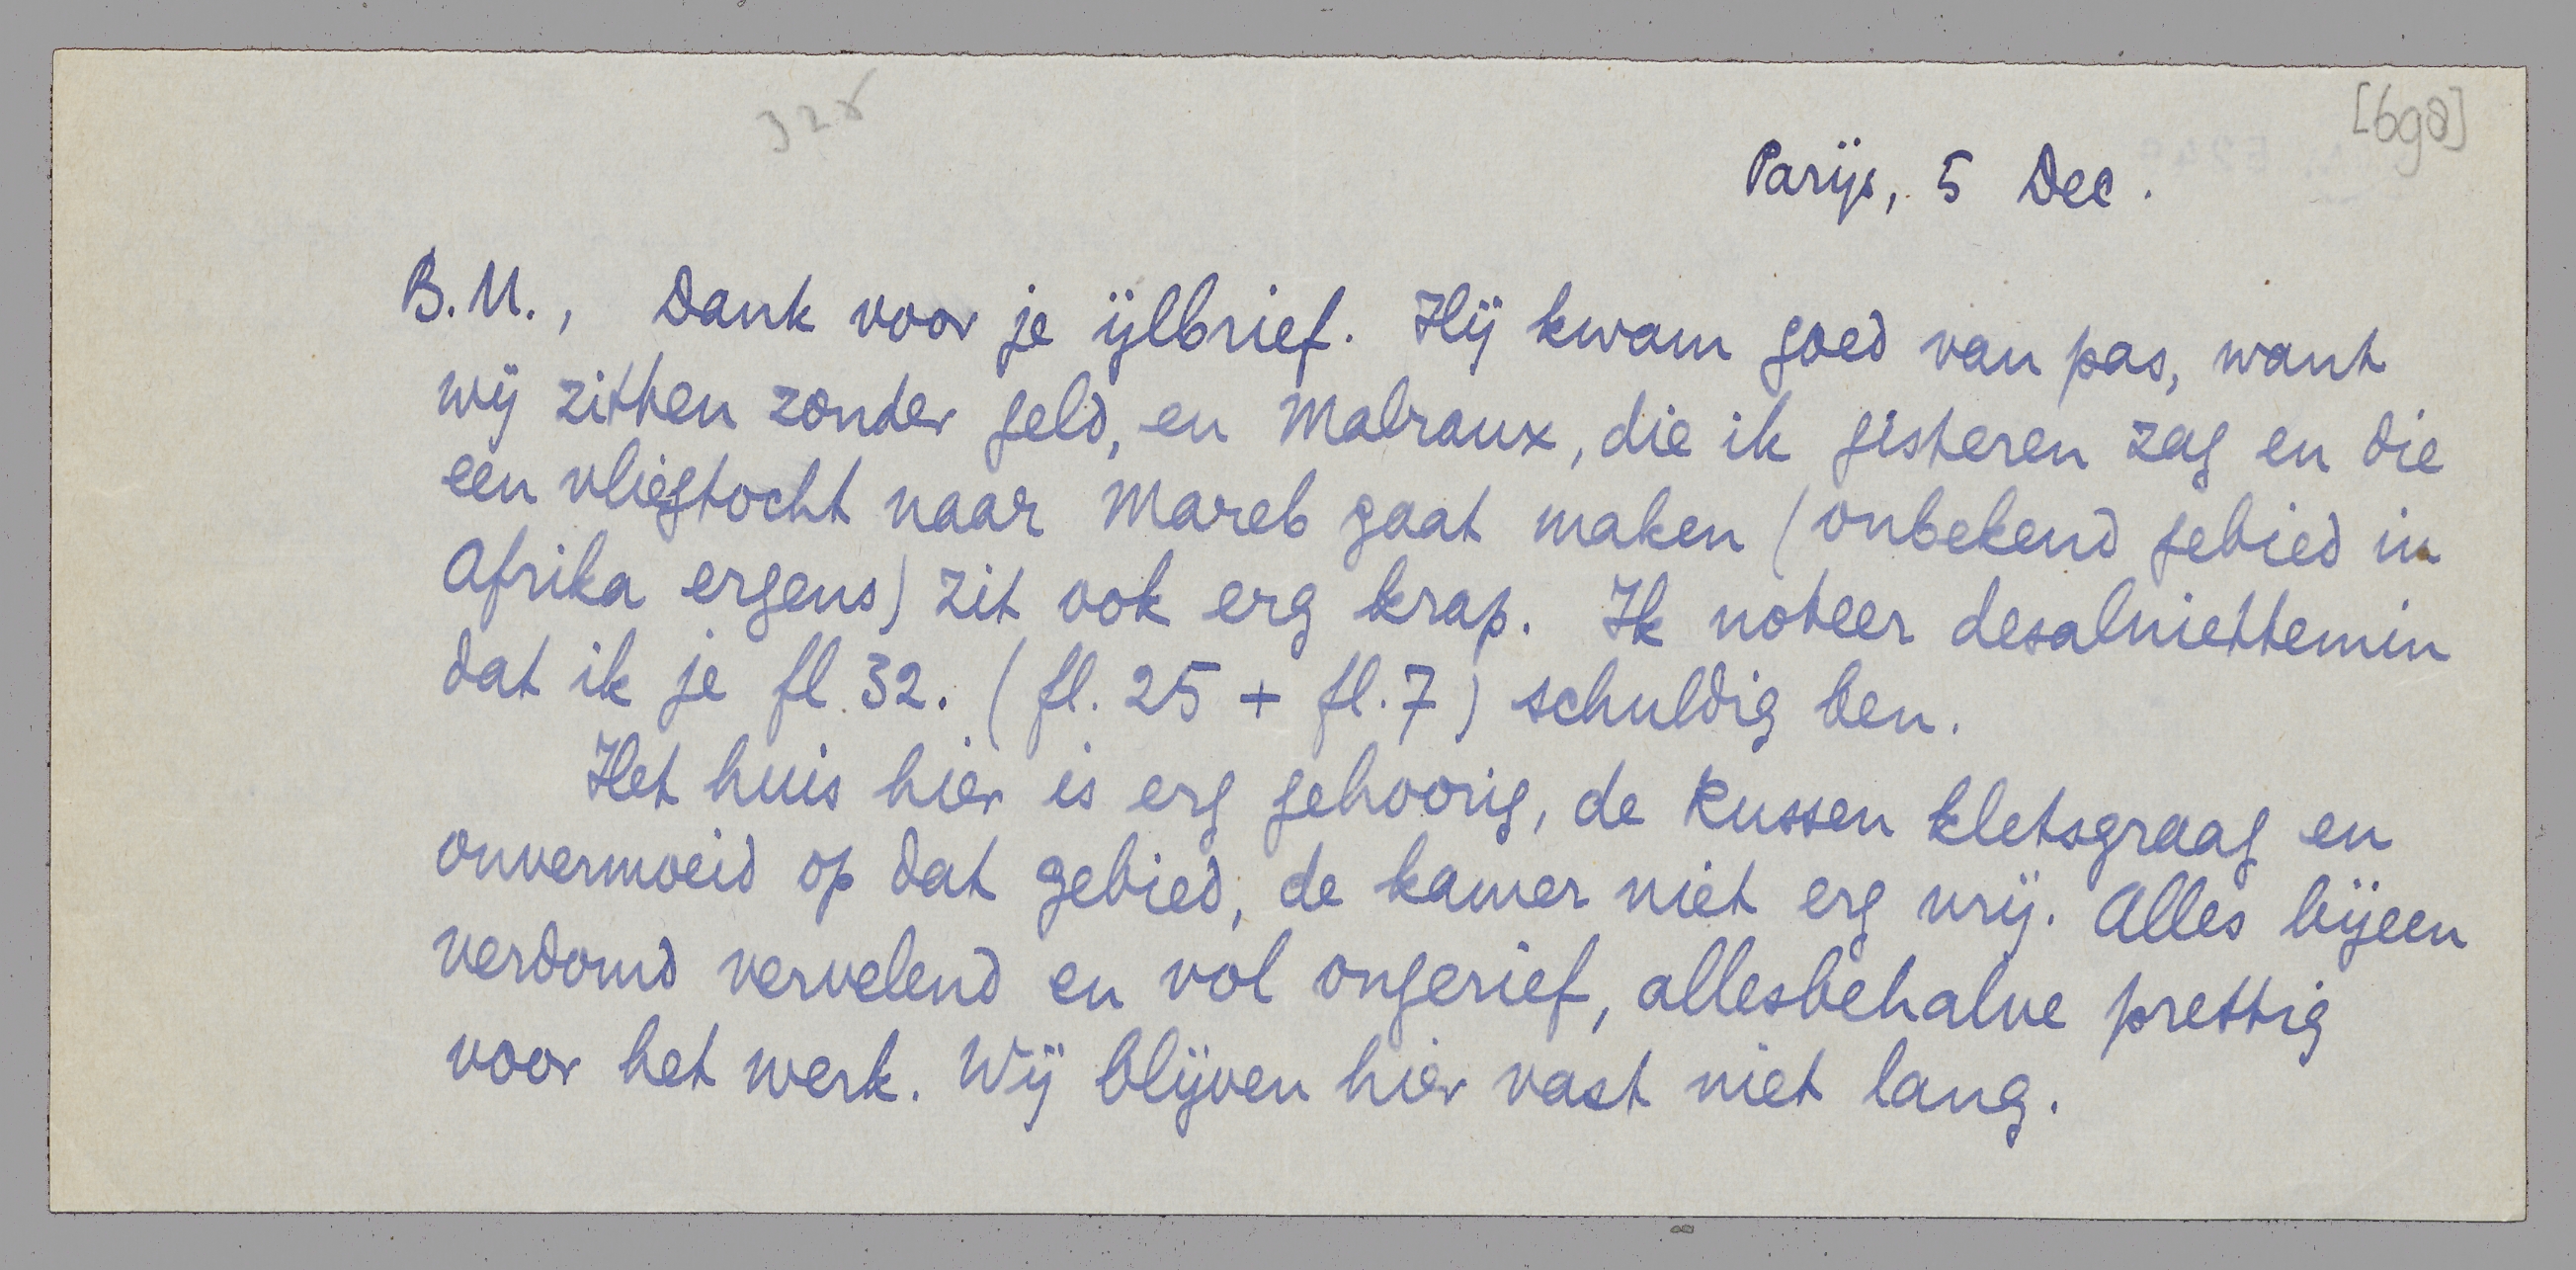 [698]
Parijs, 5 Dec.
B.M., Dank voor je ijlbrief. Hij kwam goed van pas, want
wij zitten zonder geld, en Malraux, die ik gisteren zag en die
een vliegtocht naar Mareb gaat maken (onbekend gebied in
Afrika ergens) zit ook erg krap. Ik noteer desalniettemin
dat ik je fl. 32. (fl. 25 + fl. 7) schuldig ben.
Het huis hier is erg gehoorig, de Russen kletsgraag en
onvermoeid op dat gebied, de kamer niet erg vrij. Alles bijeen
verdomd vervelend en vol ongerief, allesbehalve prettig
voor het werk. Wij blijven hier vast niet lang.